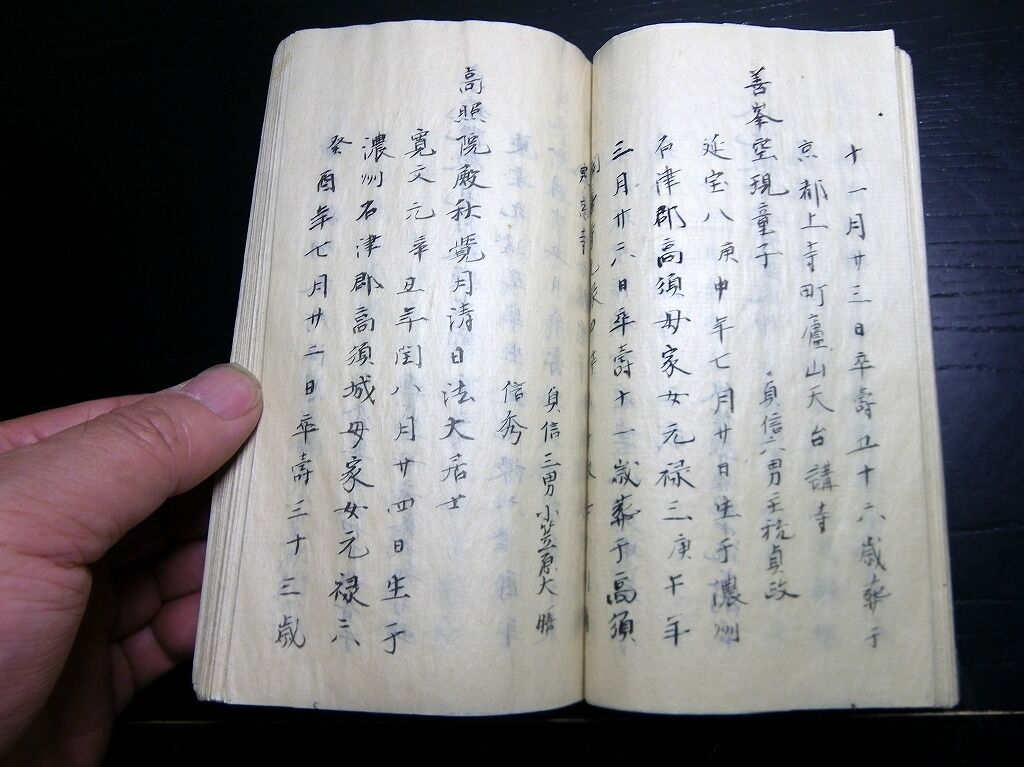 十一月廿三日卒壽五十六歳葬于
京都上寺町廬山天台講寺
善峯空現童子
貞信六男主税貞政
延宝八庚申年七月廿日生于濃洲
石津郡高須母家女元禄三庚午年
三月廿六日卒壽十一歳葬于高須
貞信三男小笠原大
信秀
高照院殿秋覺月清日法大居士
寛文元辛丑年閏八月廿四日生于
濃州石津郡高須城母家女元禄六
癸酉年七月廿二日卒壽三十三歳